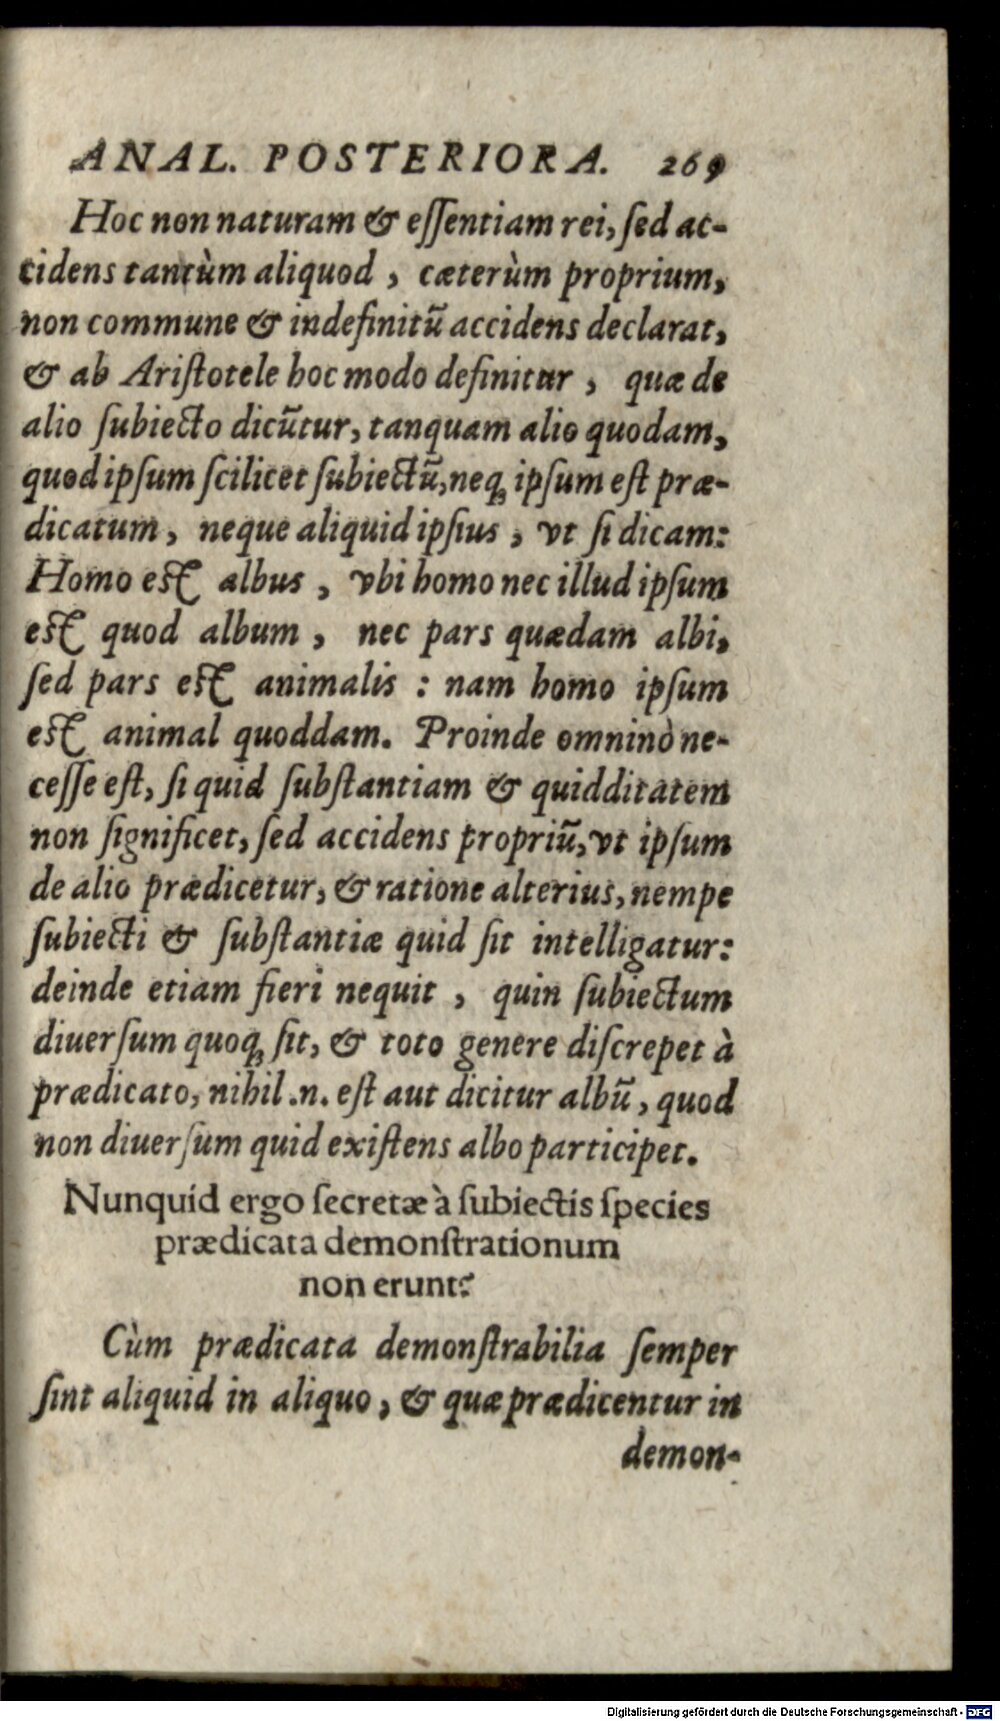 ANAL. POSTERIORA. 269
Hoc non naturam & eſſentiam rei, ſed ac-
cidens tantùm aliquod, cæterùm proprium,
non commune & indefinitũ accidens declarat,
& ab Ariſtotele hoc modo definitur, quæ de
alio ſubiecto dicũtur, tanquam alio quodam,
quod ipſum ſcilicet ſubiectũ, neq; ipſum eſt præ-
dicatum, neque aliquid ipſius, vt ſi dicam:
Homo eſt albus, vbi homo nec illud ipſum
eſt quod album, nec pars quædam albi,
ſed pars eſt animalis: nam homo ipſum
eſt animal quoddam. Proinde omninò ne-
ceſſe eſt, ſi quid ſubſtantiam & quidditatem
non ſignificet, ſed accidens propriũ, vt ipſum
de alio prædicetur, & ratione alterius, nempe
ſubiecti & ſubſtantiæ quid ſit intelligatur:
deinde etiam fieri nequit, quin ſubiectum
diuerſum quoq; ſit, & toto genere diſcrepet à
prædicato, nihil .n. eſt aut dicitur albũ, quod
non diuerſum quid exiſtens albo participet.
Nunquid ergo ſecretæ à ſubiectis ſpecies
prædicata demonſtrationum
non erunt?
Cùm prædicata demonſtrabilia ſemper
ſint aliquid in aliquo, & quæ prædicentur in
demon-
Digitalisierung gefördert durch die Deutsche Forschungsgemeinschaft - DFG